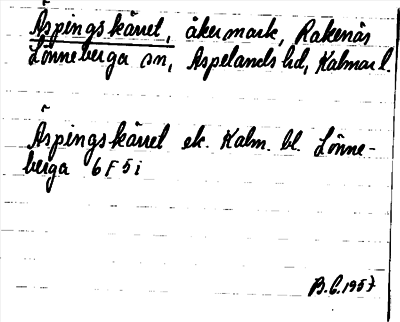 Äspingskärret, åkermark, Rakenäs
Lönneberga sn, Aspelands hd, Kalmar l.
Äspingskärret ek. Kalm. bl. Lönne-
berga 6 F 5 i
B.G. 1957